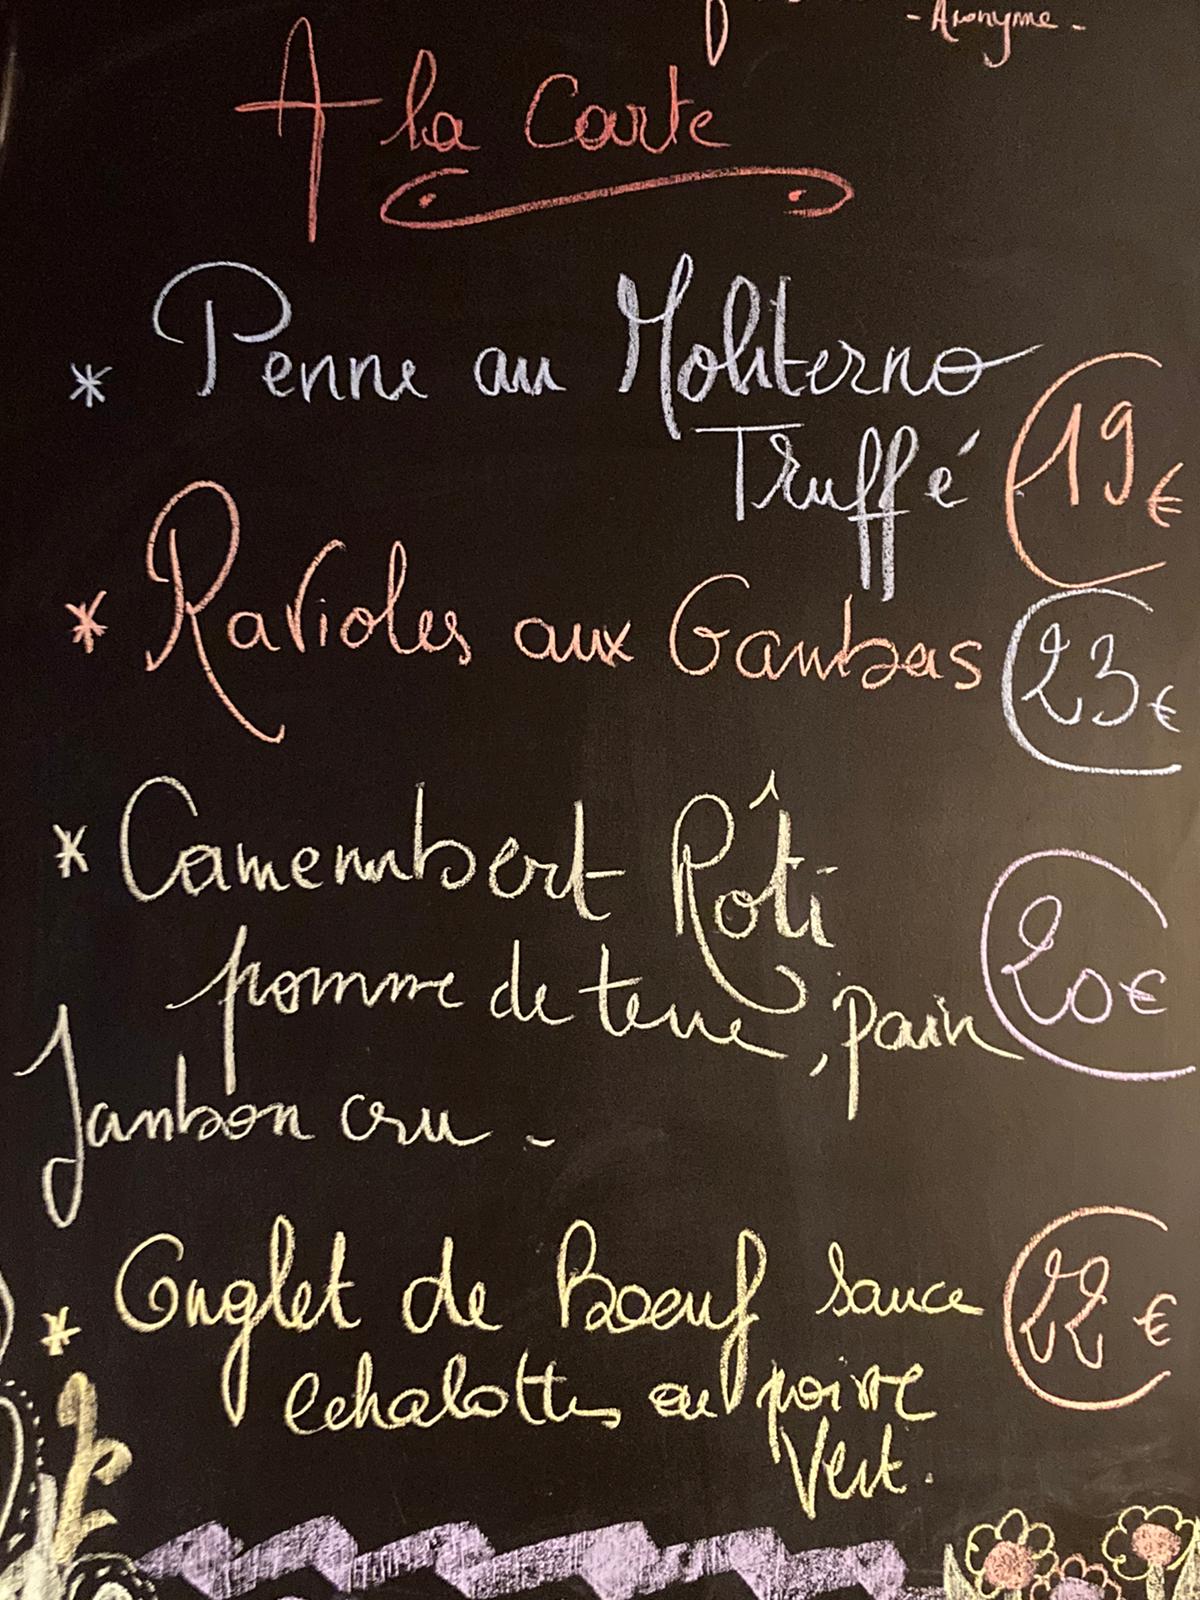 - Anonyme -
A la Carte
* Penne au Moliterno
Truffé 19€
* Ravioles aux Gambas 23€
* Camembert Rôti
pomme de terre, pain 20€
Jambon cru -
* Onglet de Boeuf sauce 22€
echalottes ou poivre
Vert.